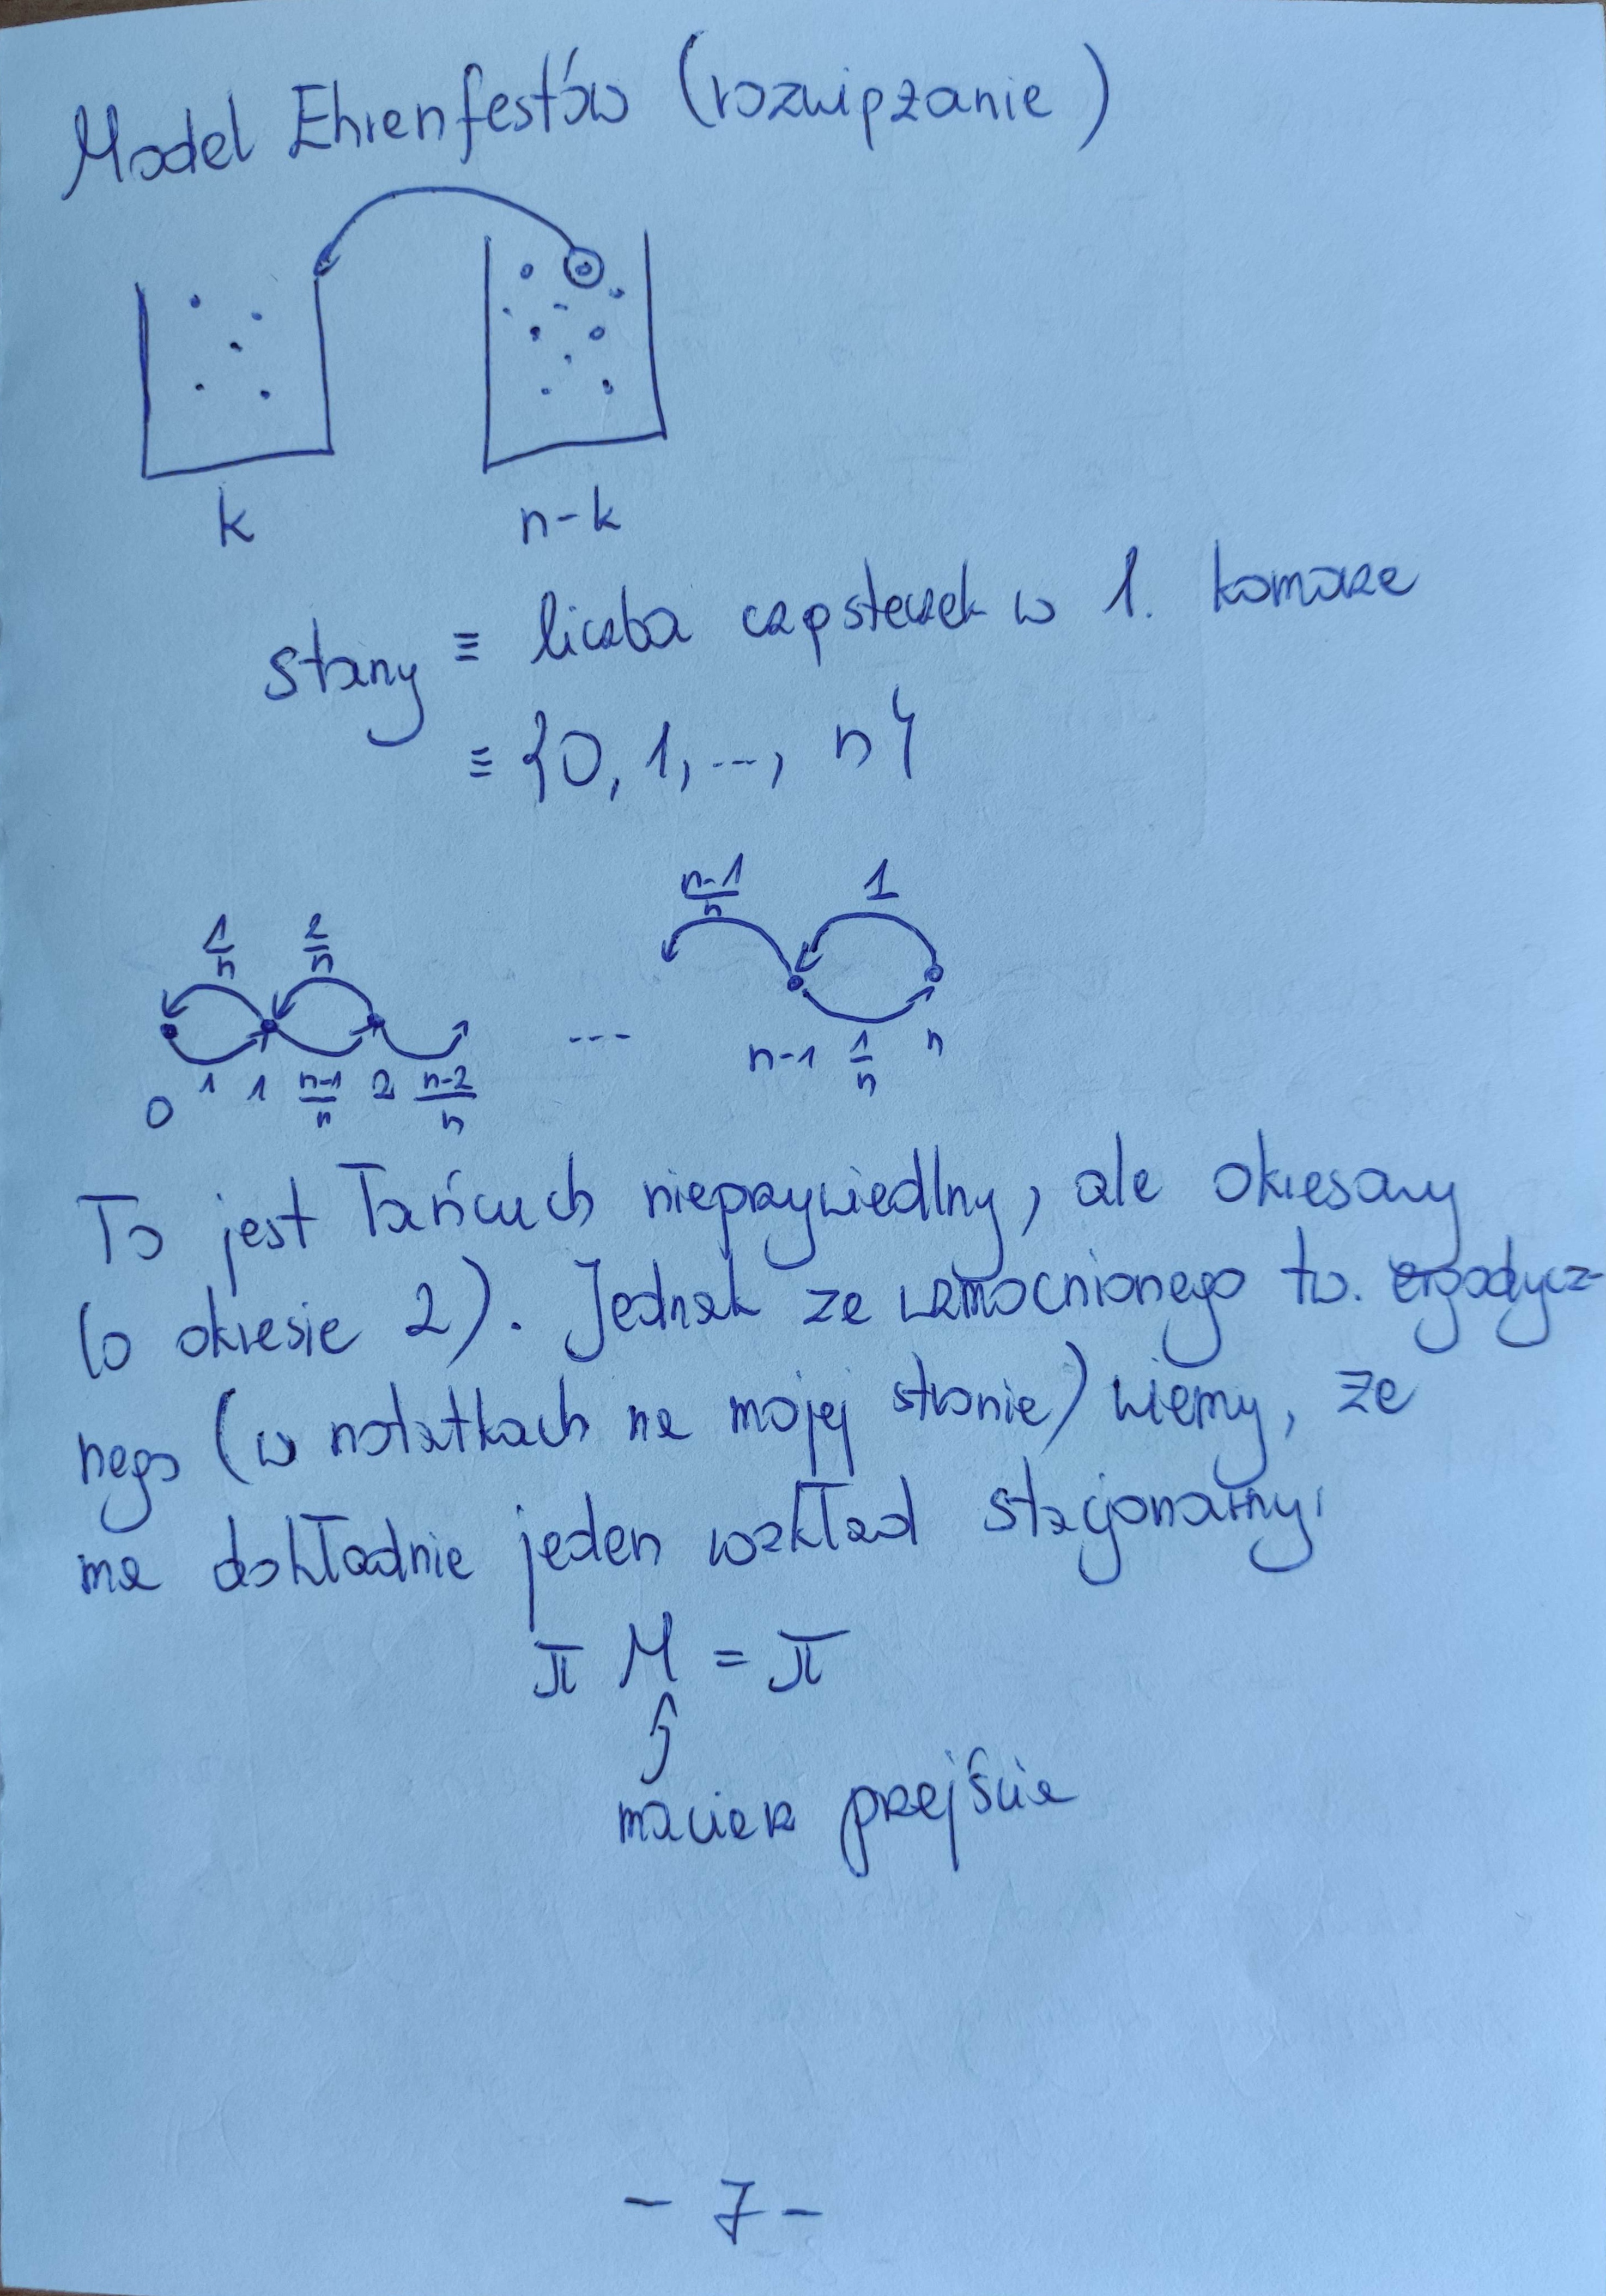 Model Ehrenfestów (rozwiązanie)
k n-k
stany ≡ liczba cząsteczek w 1. komorze
≡ {0, 1, ..., n}
n-1/n 1
1/n 2/n
...
0 1 1 n-1/n 2 n-2/n n-1 1/n n
To jest łańcuch nieprzywiedlny, ale okresowy
(o okresie 2). Jednak ze wzmocnionego tw. ergodycz-
nego (w notatkach na mojej stronie) wiemy, że
ma dokładnie jeden rozkład stacjonarny:
π M = π
macierz przejścia
- 7 -